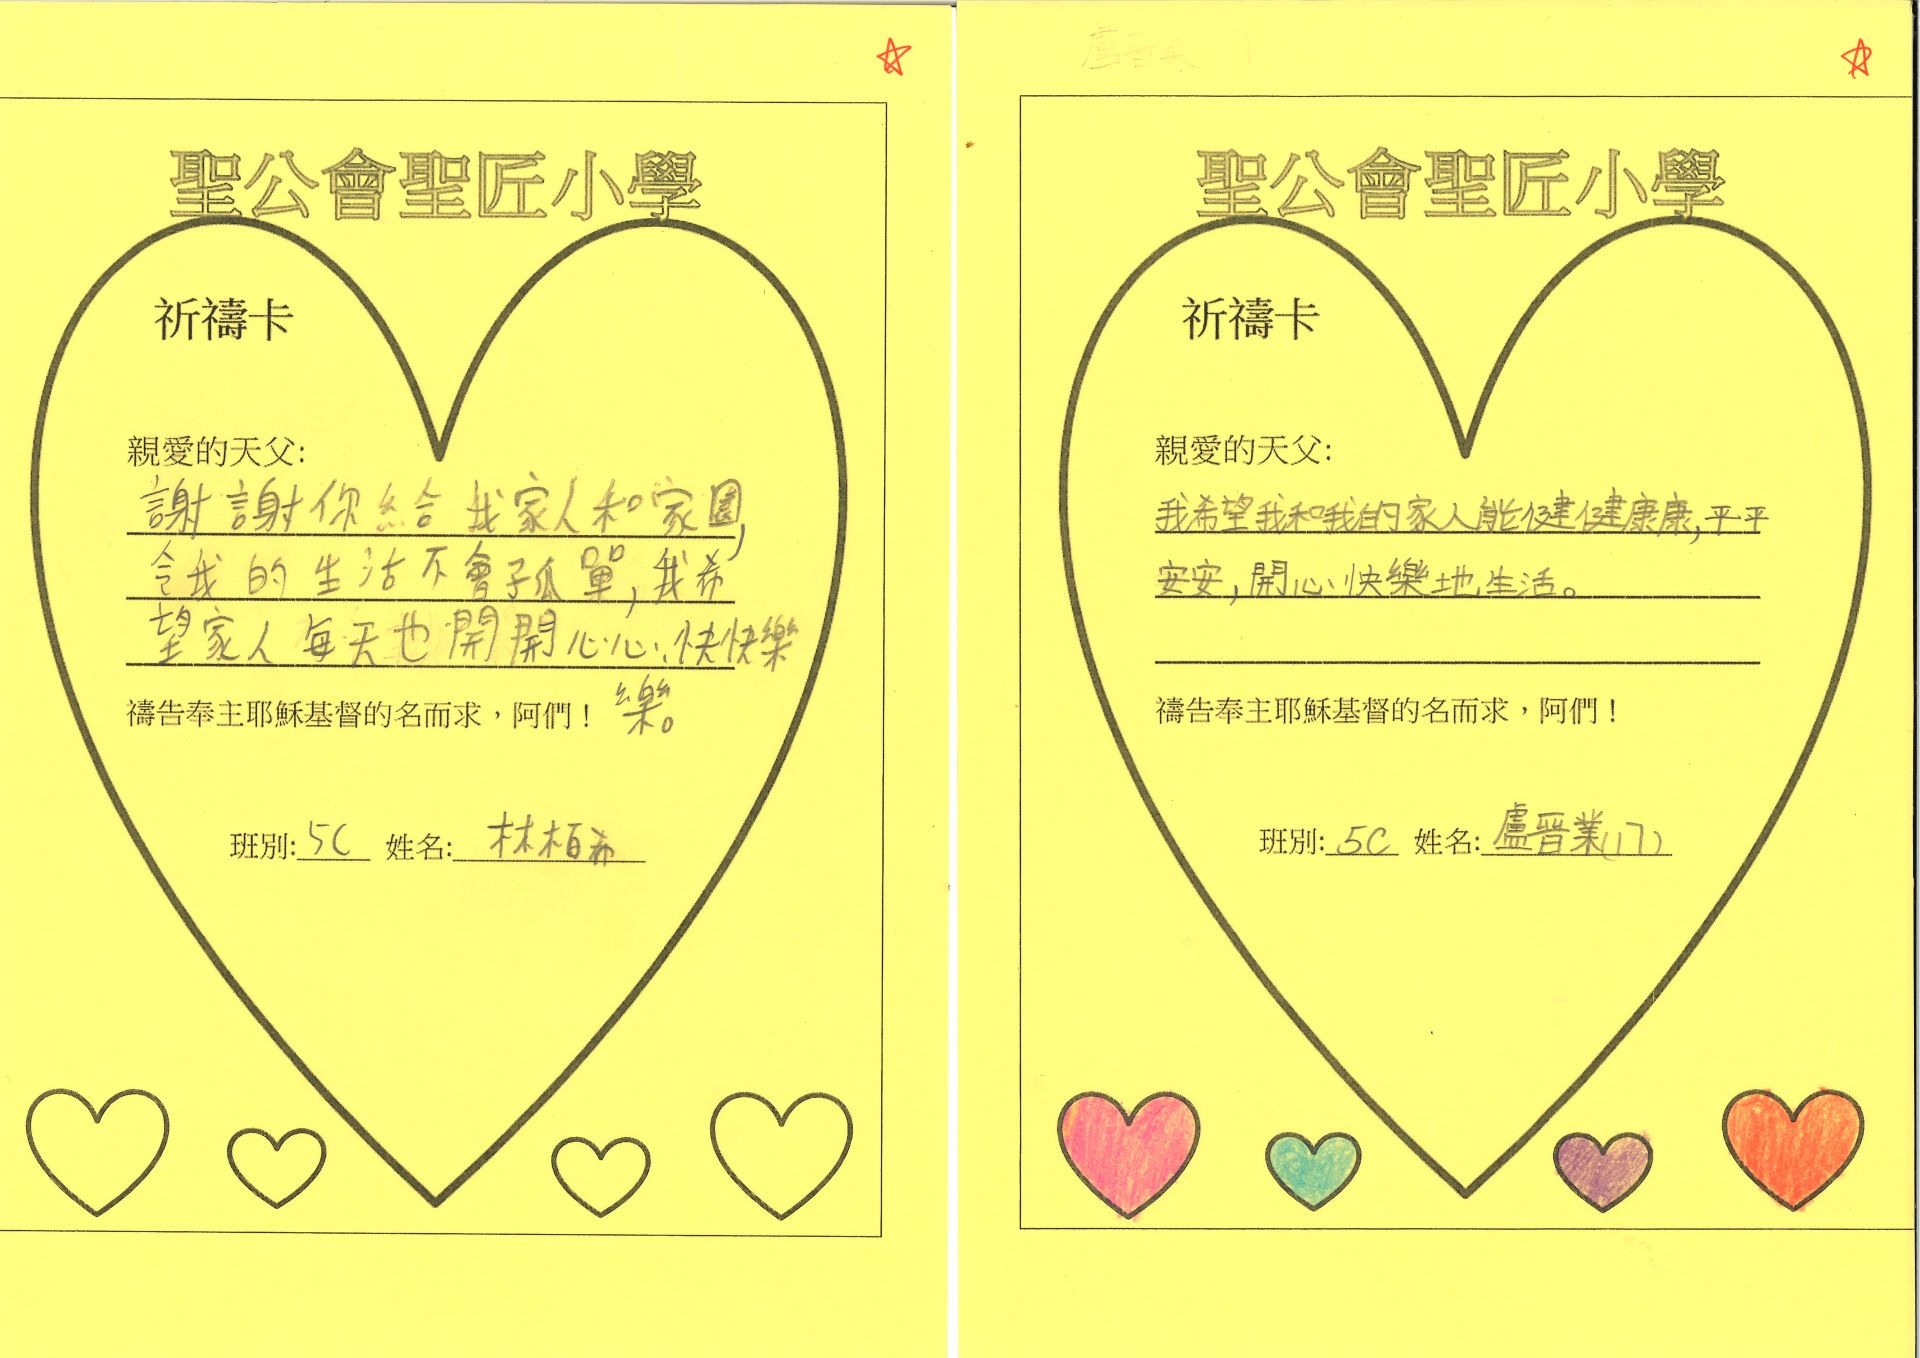 聖公會聖匠小學
祈禱卡
親愛的天父:
謝謝你給我家人和家園,
令我的生活不會孤單,我希
望家人每天也開開心心、快快樂
樂。
禱告奉主耶穌基督的名而求，阿們！
班別:5C 姓名:林栢希
盧晉業
聖公會聖匠小學
祈禱卡
親愛的天父:
我希望我和我的家人能健健康康,平平
安安,開心快樂地生活。
禱告奉主耶穌基督的名而求，阿們！
班別:5C 姓名:盧晉業(17)